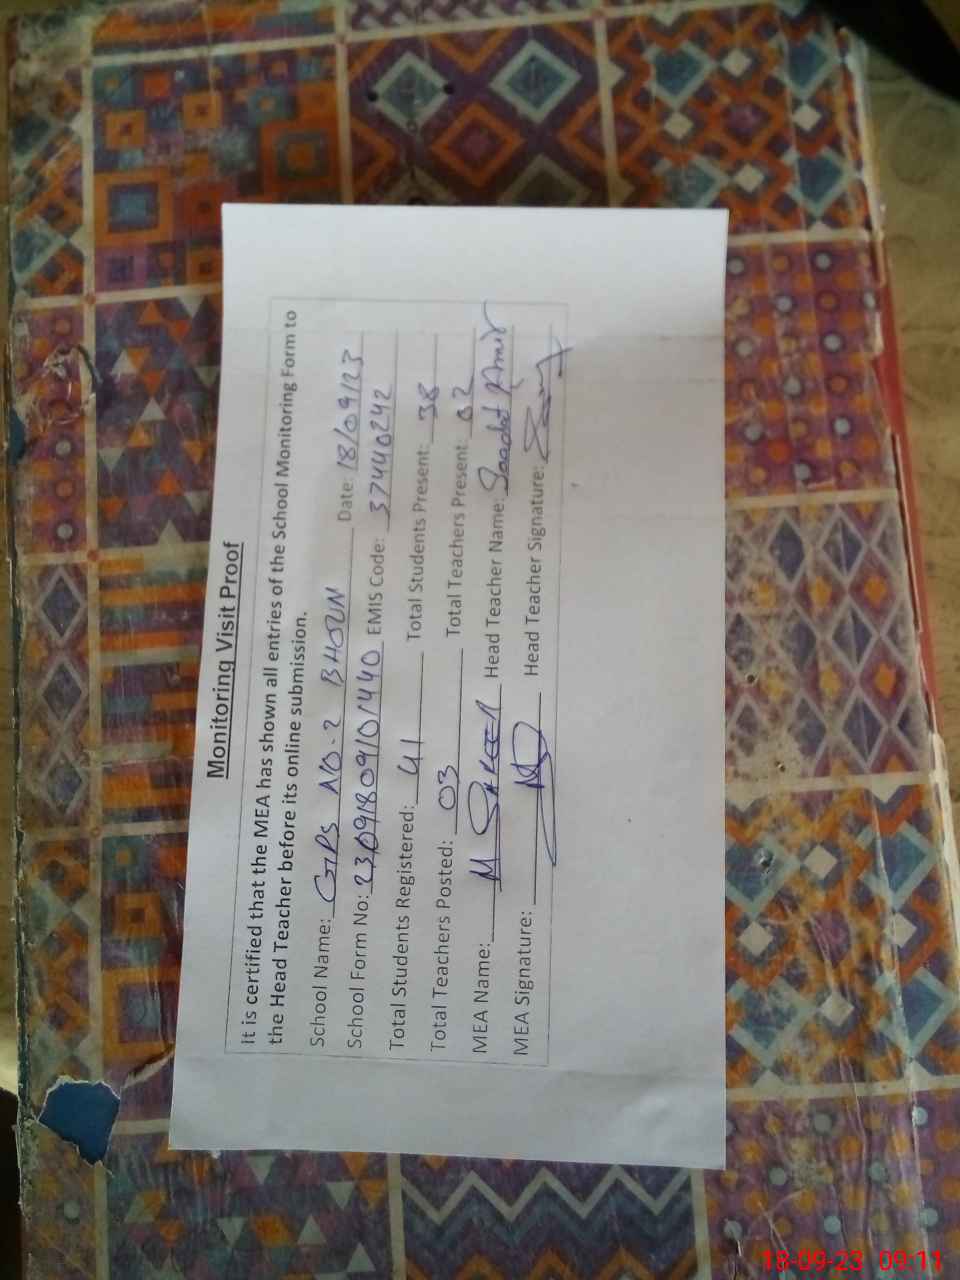 Monitoring Visit Proof
It is certified that the MEA has shown all entries of the School Monitoring Form to
the Head Teacher before its online submission.
School Name: GPS NO-2 BHOUN Date: 18/09/23
School Form No: 23091809101440 EMIS Code: 37440242
Total Students Registered: 41 Total Students Present: 38
Total Teachers Posted: 03 Total Teachers Present: 02
MEA Name: M Head Teacher Name:
MEA Signature: Head Teacher Signature:
18-09-23 09:11